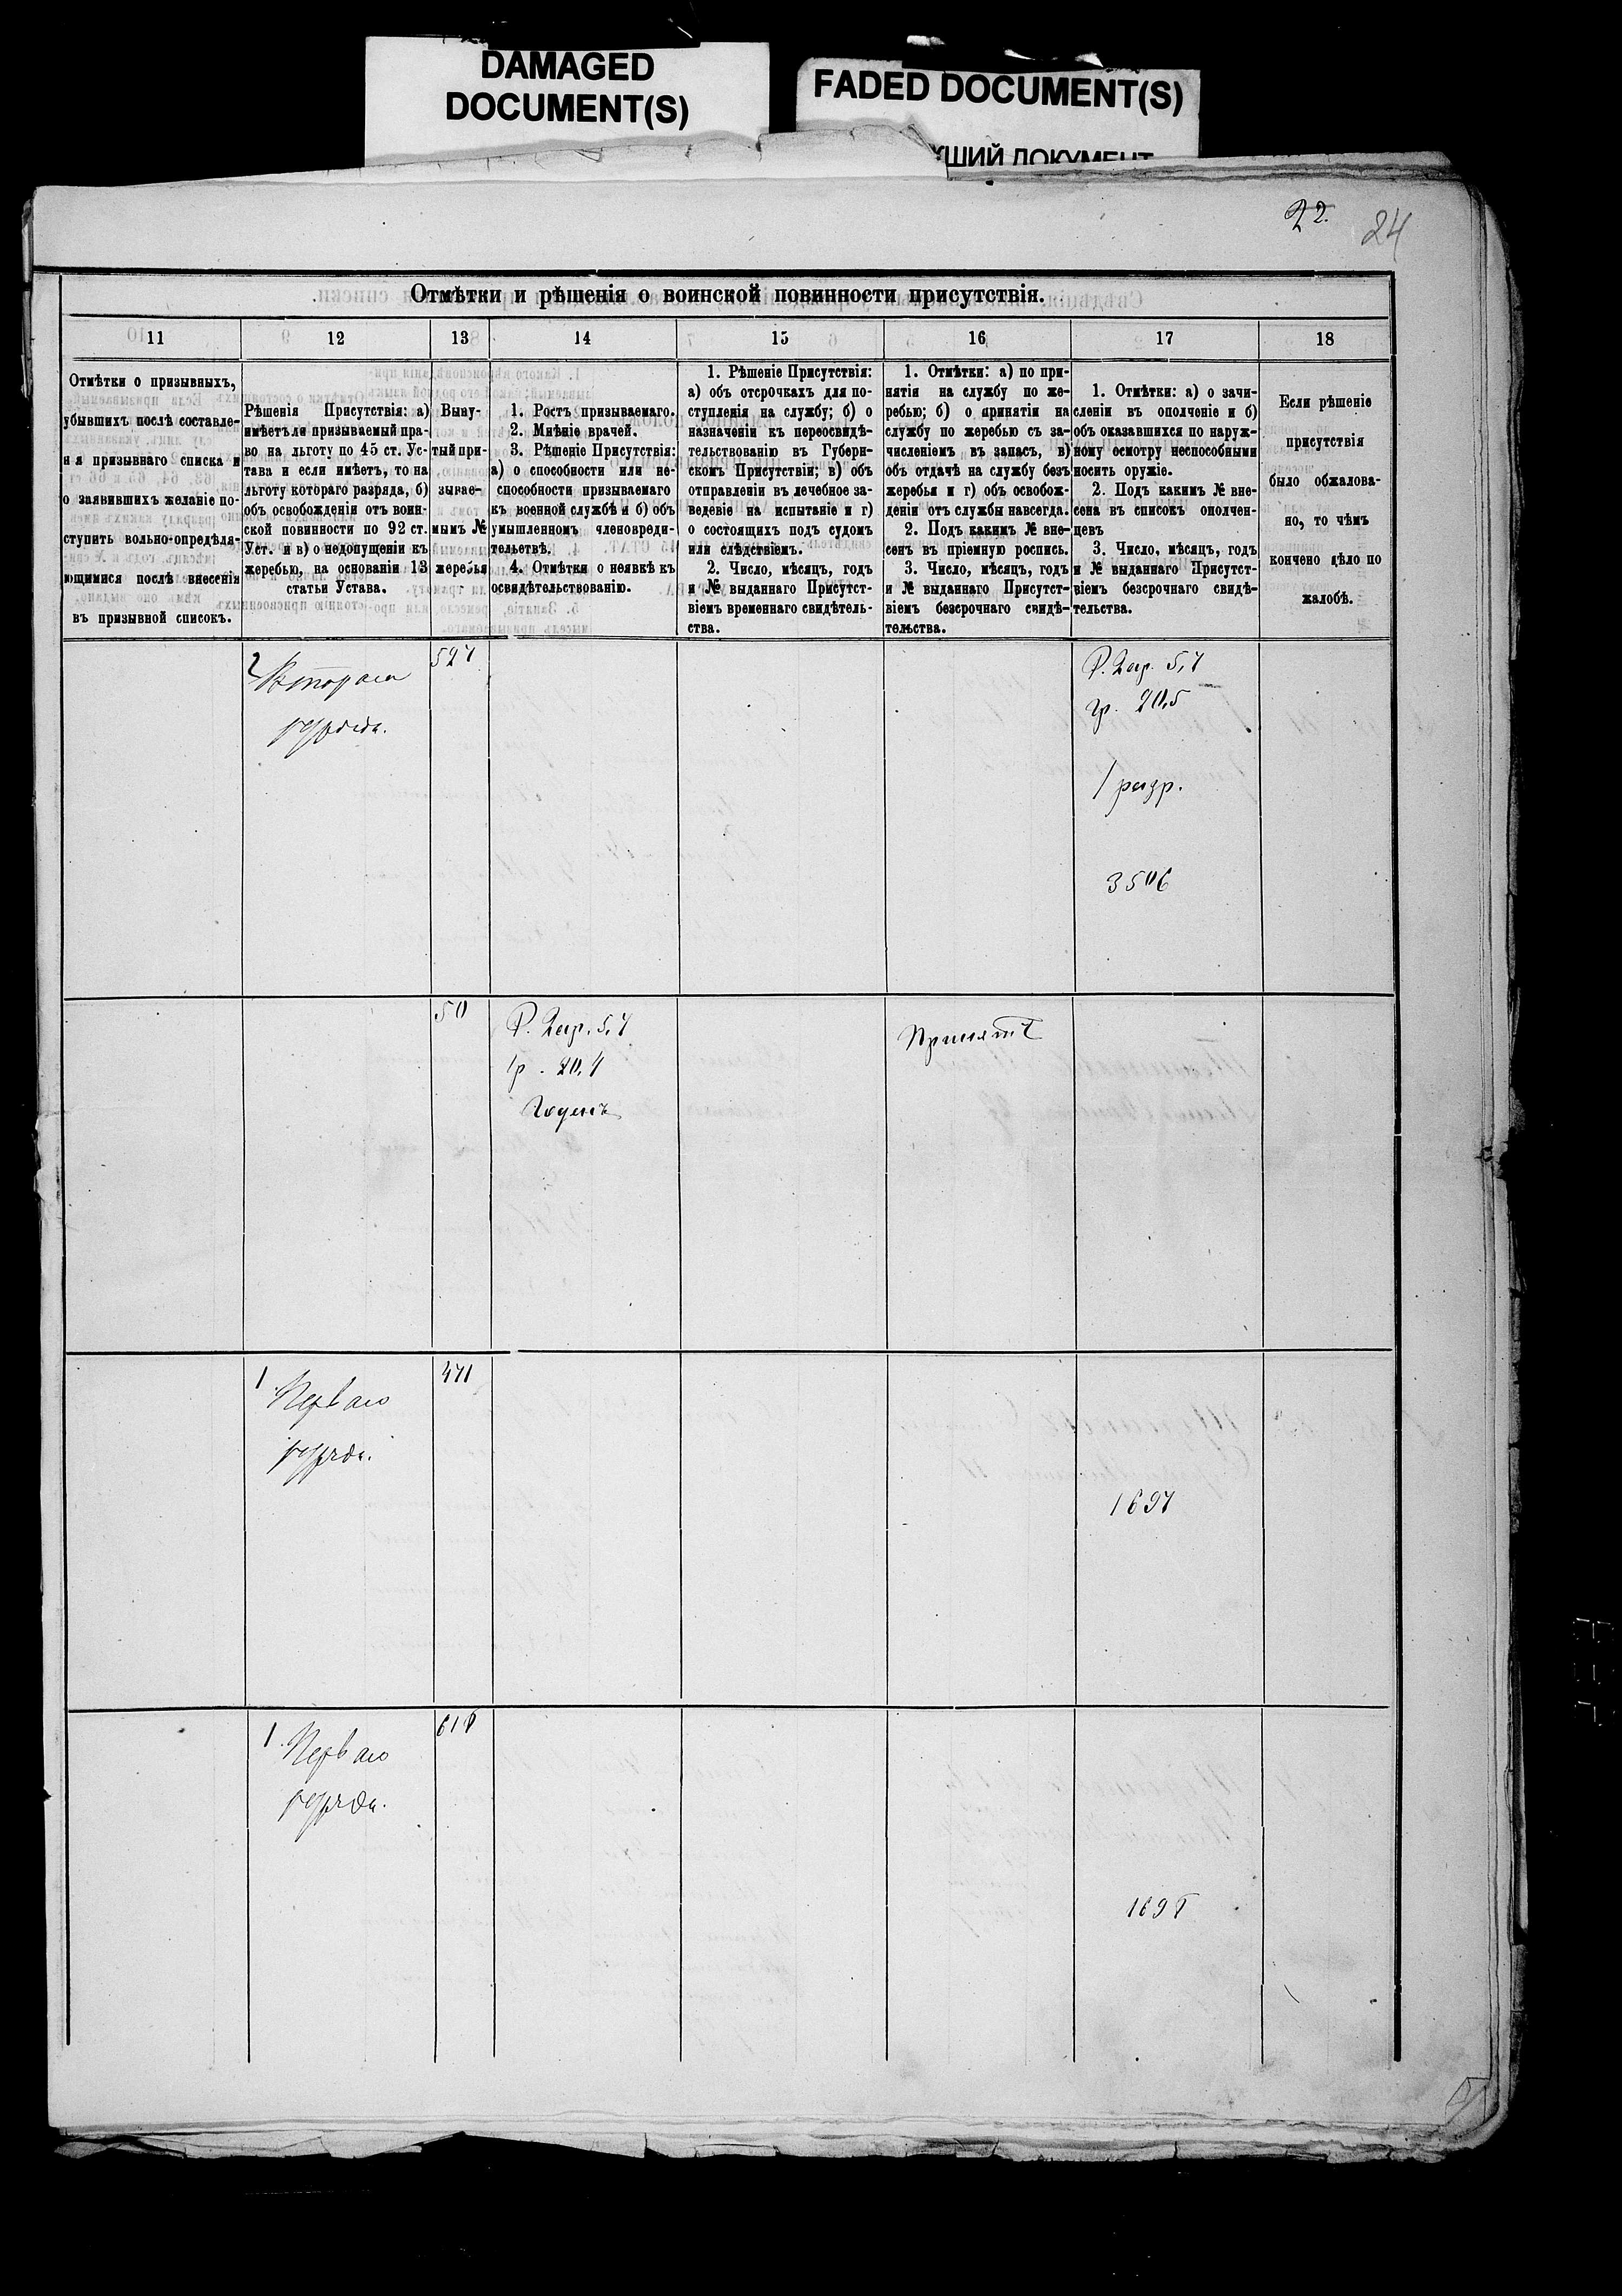 DAMAGED
DOCUMENT(S)
FADED DOCUMENT(S)
ШИЙ ДОКУМЕНТ
22.
24
Отмѣтки и рѣшенія о воинской повинности присутствія.
11
12
13
14
15
16
17
18
Отмѣтки о призывныхъ,
убывшихъ послѣ составле-
ня призывнаго списка и
о заявившихъ желаніе по-
ступить вольно-опредѣля-
ющимися послѣ внесенія
въ призывной списокъ.
Рѣшенія Присутствія: а)
имѣетъ ли призываемый пра-
во на льготу по 45 ст. Ус-
тава и если имѣетъ, то на
льготу котораго разряда, б)
объ освобожденіи отъ воин-
ской повинности по 92 ст.
Уст. и в) о недопущеніи къ
жеребью, на основаніи 13
статьи Устава.
Выну-
тый при-
зывае-
мымъ №
жеребья
1. Ростъ призываемаго.
2. Мнѣніе врачей.
3. Рѣшеніе Присутствія:
а) о способности или не-
способности призываемаго
къ военной службѣ и б) объ
умышленномъ членовреди-
тельствѣ.
4. Отмѣтки о неявкѣ къ
освидѣтельствованію.
1. Рѣшеніе Присутствія:
а) объ отсрочкахъ для по-
ступленія на службу; б) о
назначеніи къ переосвидѣ-
тельствованію въ Губерн-
скомъ Присутствіи; в) объ
отправленіи въ лечебное за-
веденіе на испытаніе и г)
о состоящихъ подъ судомъ
или слѣдствіемъ.
2. Число, мѣсяцъ, годъ
и № выданнаго Присутст-
віемъ временнаго свидѣтель-
ства.
1. Отмѣтки: а) по при-
нятія на службу по же-
ребью; б) о принятіи на
службу по жеребью съ за-
численіемъ въ запасъ, в)
объ отдачѣ на службу безъ
жеребья и г) объ освобож-
деніи отъ службы навсегда.
2. Подъ какимъ № вне-
сенъ въ пріемную роспись.
3. Число, мѣсяцъ, годъ
и № выданнаго Присутст-
віемъ безсрочнаго свидѣ-
тельства.
1. Отмѣтки: а) о зачи-
сленіи въ ополченіе и б)
объ оказавшихся по наруж-
ному осмотру неспособными
носить оружіе.
2. Подъ какимъ № вне-
сена въ списокъ ополчен-
цевъ
3. Число, мѣсяцъ, годъ
и № выданнаго Присутст-
віемъ безсрочнаго свидѣ-
тельства.
Если рѣшеніе
присутствія
было обжалова-
но, то чѣмъ
кончено дѣло по
жалобѣ.
2 Втораго
разряда.
527
Р. 2 ар. 5,7
гр. 20,5
1 разр.
3506
50
Р. 2 ар. 5,7
гр. 20,4
Годенъ
Принятъ
1 Перваго
разряда.
471
1697
1 Перваго
разряда.
618
1698